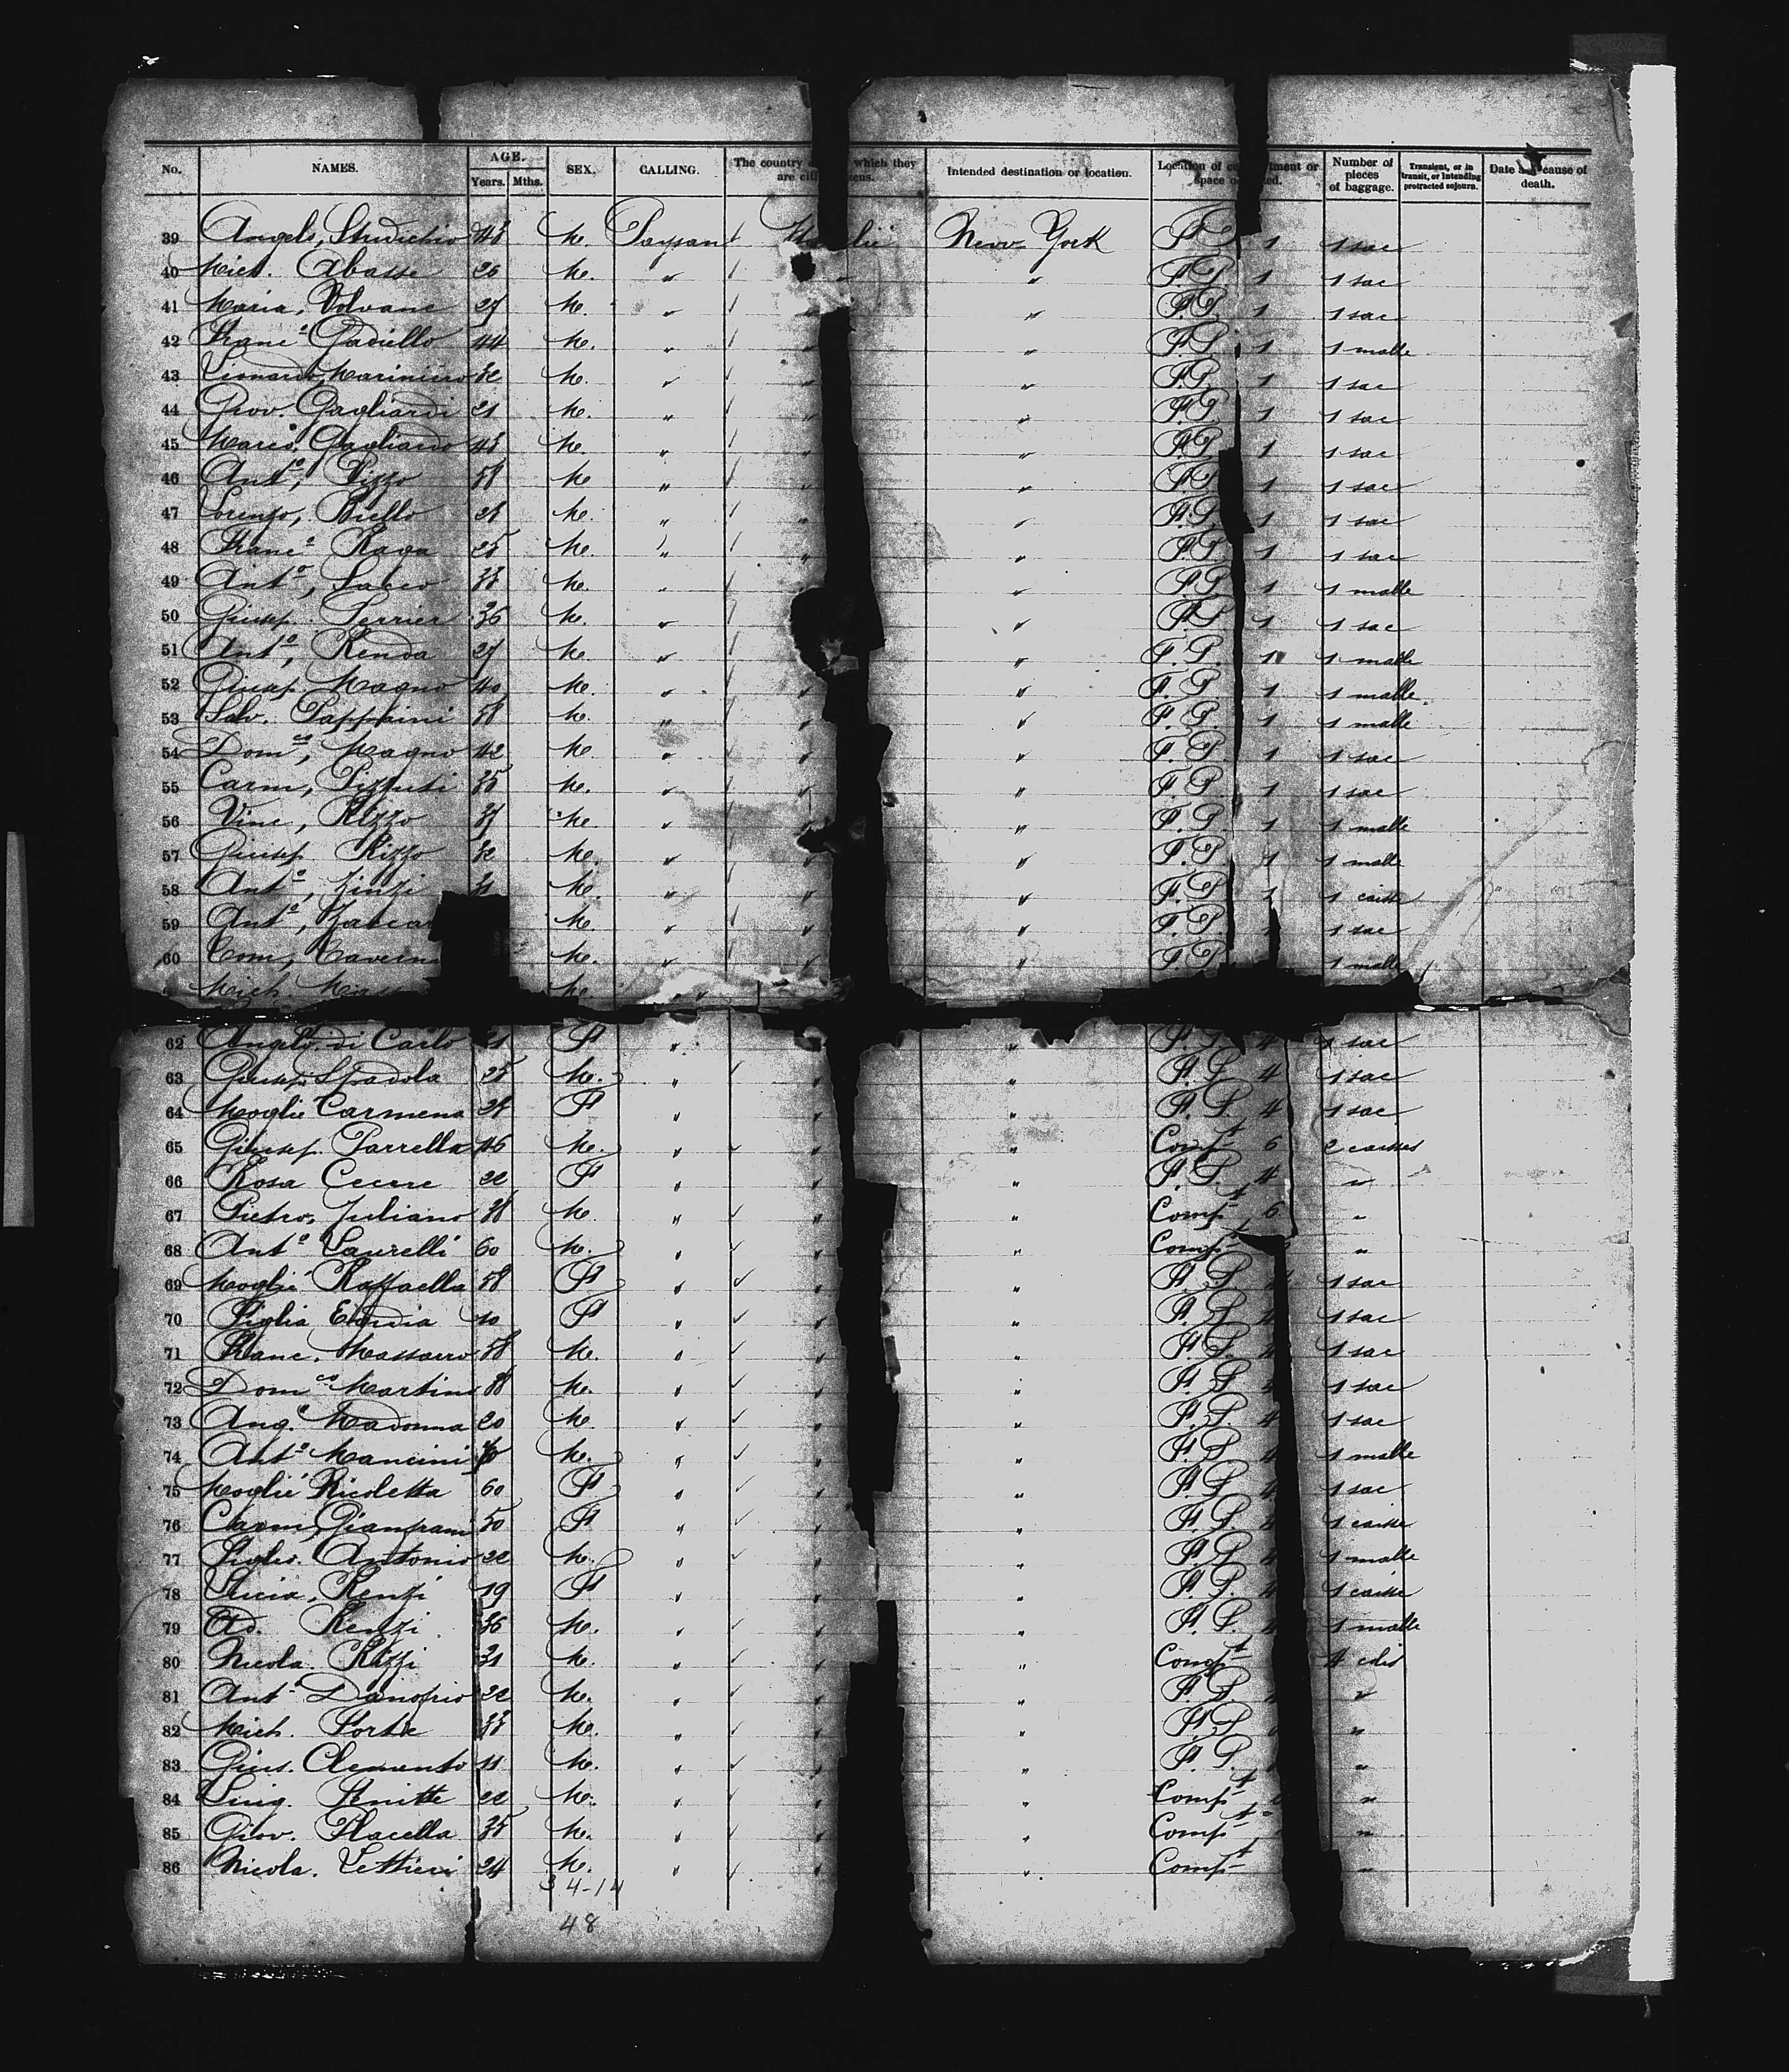 No. NAMES. AGE. Years. Mths. SEX. CALLING. The country which they are citizens. Intended destination or location. Location of compartment or space occupied. Number of pieces of baggage. Transient, or in transit, or intending protracted sojourn. Date and cause of death.
39 Angelo, 48 M. Paysan New York F.P. 1 1 sac
40 Mich. Abasse 26 M. " " F.P. 1 1 sac
41 Maria, Volvane 27 M. " " F.P. 1 1 sac
42 Franc° 44 M. " " F.P. 1 1 malle
43 Leonardo, Mariniero 32 M. " " F.P. 1 1 sac
44 Giov. Gagliardi 21 M. " " " F.P. 1 1 sac
45 Mario, Gagliardo 48 M. " " " F.P. 1 1 sac
46 Ant°, Pizzo 58 M " " " F.P. 1 1 sac
47 Lorenzo, Biello 28 M. " " " F.P. 1 1 sac
48 Franc° Raga 25 M. " " " F.P. 1 1 sac
49 Ant°, Sacco 33 M. " " F.P. 1 1 malle
50 Giusep. Perrier 36 M. " " F.P. 1 1 sac
51 Ant°, Renda 27 M. " " F.P. 1 1 malle
52 Giusep. Magno 40 M. " " " F.P. 1 1 malle
53 Salv. Pappaini 58 M. " " " F.P. 1 1 malle
54 Dom co, Magno 42 M " " " F.P. 1 1 sac
55 Carm, Pizzuti 35 M. " " " F.P. 1 1 sac
56 Vinc, Rizzo 37 M. " " F.P. 1 1 malle
57 Giusep Rizzo 32 M. " " " F.P. 1 1 malle
58 Ant°, Zinzi 31 M " " " F.P. 1 1 caisse
59 Ant°, Zacca M. " " " F.P. 1 sac
60 Tavern M. " " " F.P. 1 malle
Mich M.
62 Angelo di Carlo 21 F " " F.P. 4 1 sac
63 Giusep. Spadola 25 M. " " " F.P. 4 1 sac
64 Moglie Carmena 28 F " " " F.P. 4 1 sac
65 Giusep. Parrella 46 M. " " " Compt 6 2 caisses
66 Rosa Cecere 22 F " " " F.P. 4 "
67 Pietro, Juliano 38 M. " " " Compt 6 "
68 Ant° Laurelli 60 M. " " " Compt "
69 Moglie Raffaella 58 F " " " F.P. 4 1 sac
70 Figlia 10 F " " " F.P. 4 1 sac
71 Franc. Massarro 58 M. " " " F.P. 4 1 sac
72 Dom co Martino 38 M. " " " F.P. 4 1 sac
73 Ang° Madonna 20 M " " " F.P. 4 1 sac
74 Ant° Mancini M. " " " F.P. 4 1 malle
75 Moglie Nicoletta 60 F " " " F.P. 4 1 sac
76 50 F " " " F.P. 4 1 caisse
77 Figlio. Antonio 22 M. " " " F.P. 4 1 malle
78 Lucia, Renzi 19 F " " " F.P. 4 1 caisse
79 Ad. Renzi 36 M. " " " F.P. 4 1 malle
80 Nicola. Rizzi 31 M. " " " Compt 4 colis
81 Ant° Danofrio 22 M. " " " F.P. "
82 Mich. Forte 33 M. " " " F.P. "
83 Gius. Clemento 11 M. " " " F.P. "
84 22 M. " " " Compt "
85 Giov. Placella 35 M. " " " Compt "
86 Nicola. Lettieri 24 M. " " " Compt "
34-14
48